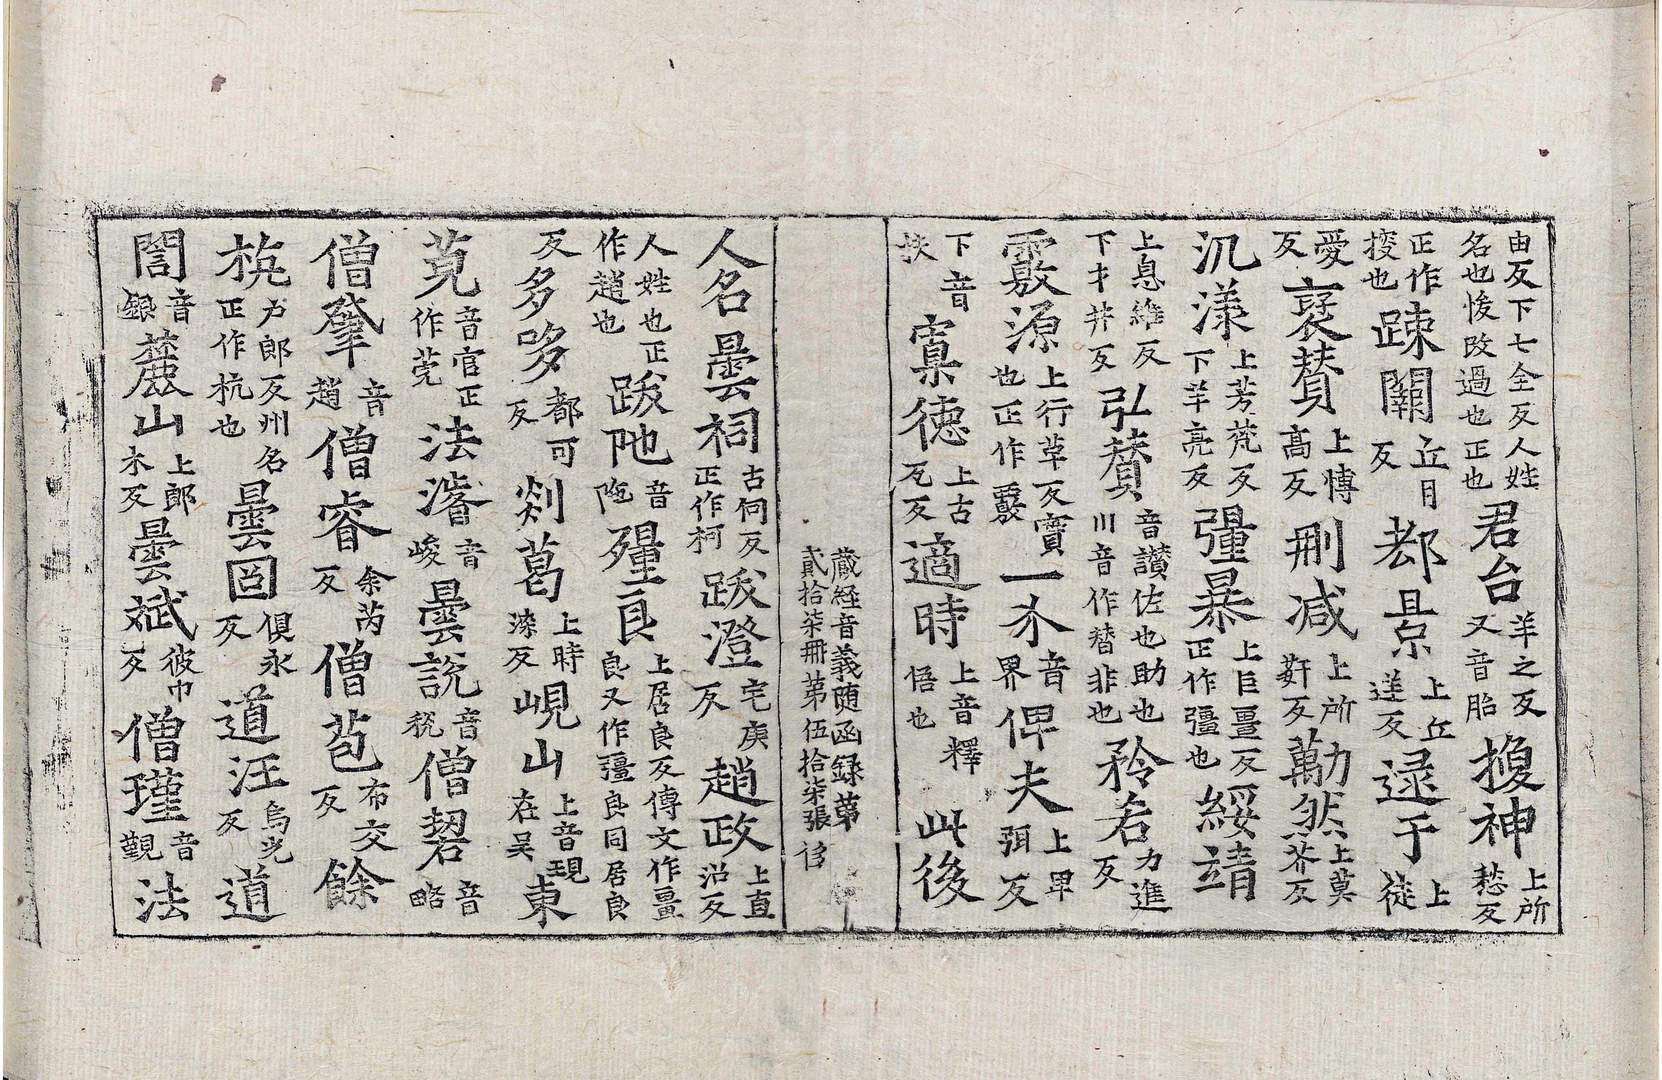 由反下七全反人姓名也悛改過也正也君台羊之反又音胎㨱神上所愁反
正作㨱也疎闢丘月反郄景上丘逆反逯于上徒
愛反裦賛上博高反刪减上所姧反勱然上莫芥反
汎漾上芳梵反下羊亮反彊暴上巨畺反正作彊也綏靖
上息維反下才井反弘賛音讃佐也助也川音作替非也矜𠫤力進反
覈源上行革反實也正作覈一介音界俾夫上卑弭反
下音扶寘德上古瓦反適時上音釋悟也此後
藏経音義随函録第貳拾柒冊第伍拾柒張
人名曇祠古伺反正作柯跋澄宅庚反趙政上直沼反
人姓也正作趙也跋阤音陁殭良上居良反傳文作畺良又作彊良同居良
反多哆都可反剡葛上時染反峴山上音現在吳東
莧音官正作莞法濬音峻曇說音稅僧䂮音略
僧肇音趙僧睿余芮反僧苞布交反餘
梹力郎反州名正作杭也曇固俱永反道汪烏光反道
誾音銀麓山上郎木反曇斌彼巾反僧瑾音覲法